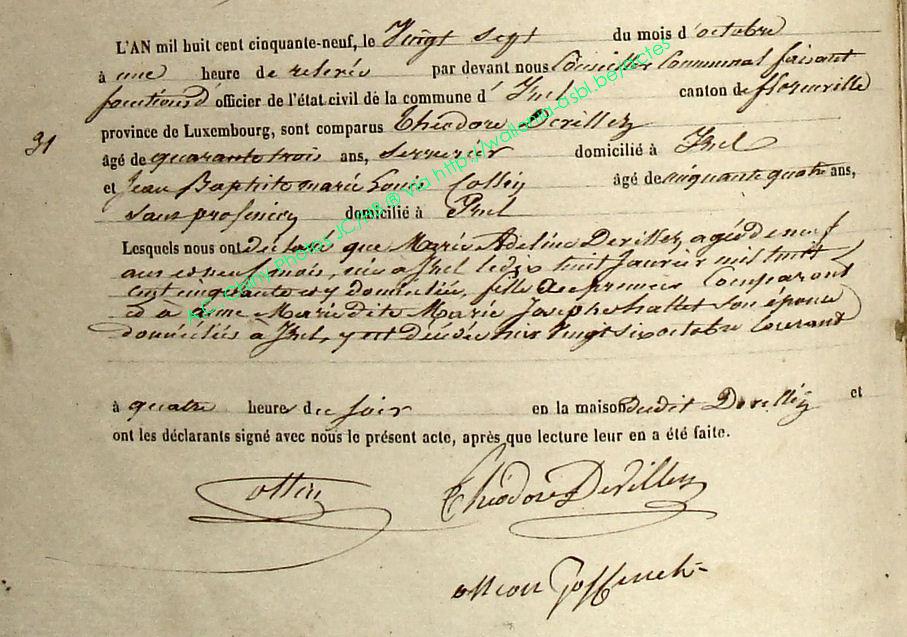 L'AN mil huit cent cinquante-neuf, le Vingt sept du mois d'octobre
à une heure de relevée par devant nous Conseiller Communal faisant
fonctions d'officier de l'état civil de la commune d'Izel canton de florenville
province de Luxembourg, sont comparus Théodore Devillez
31
âgé de quarante trois ans, serrurier domicilié à Izel
et Jean Baptiste marie Louis Collin âgé de cinquante quatre ans,
sans profession domicilié à Izel
Lesquels nous ont déclaré que Marie Adeline Devillez, agée de neuf
ans et neuf mois, née a Izel le dix huit Janvier mil huit
cent cinquante et y domiciliée, fille du premier Comparant
et a anne Marie dite Marie Josephe hallet son épouse
domiciliés a Izel, y est décédée hier vingt six octobre Courant
à quatre heure du soir en la maison dudit Devillez et
ont les déclarants signé avec nous le présent acte, après que lecture leur en a été faite.
Théodore Devillez
AC Chiny Photos JC/MB ® via http://wallonia-asbl.be/actes